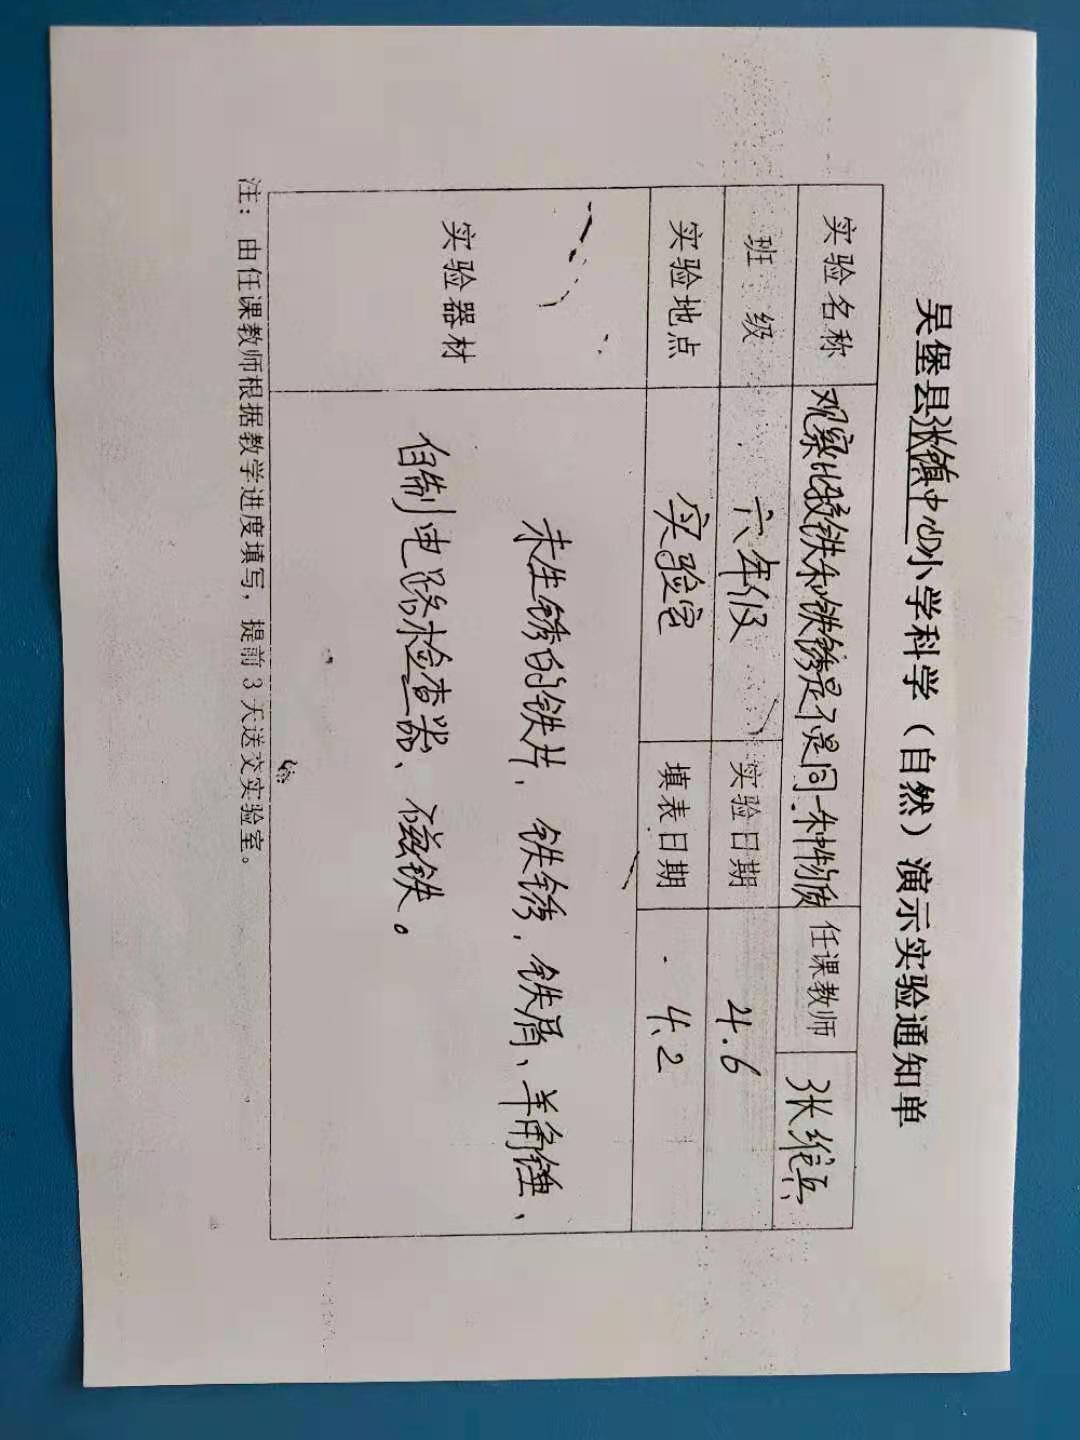 吴堡县张镇中心小学科学（自然）演示实验通知单
实验名称 观察比较铁和铁锈是不是同一种物质 任课教师 张维兵
班 级 六年级 实验日期 4.6
实验地点 实验室 填表日期 4.2
实验器材 未生锈的铁片，铁锈，铁屑、羊角锤、
自制电路检查器、磁铁。
注：由任课教师根据教学进度填写，提前3天送交实验室。